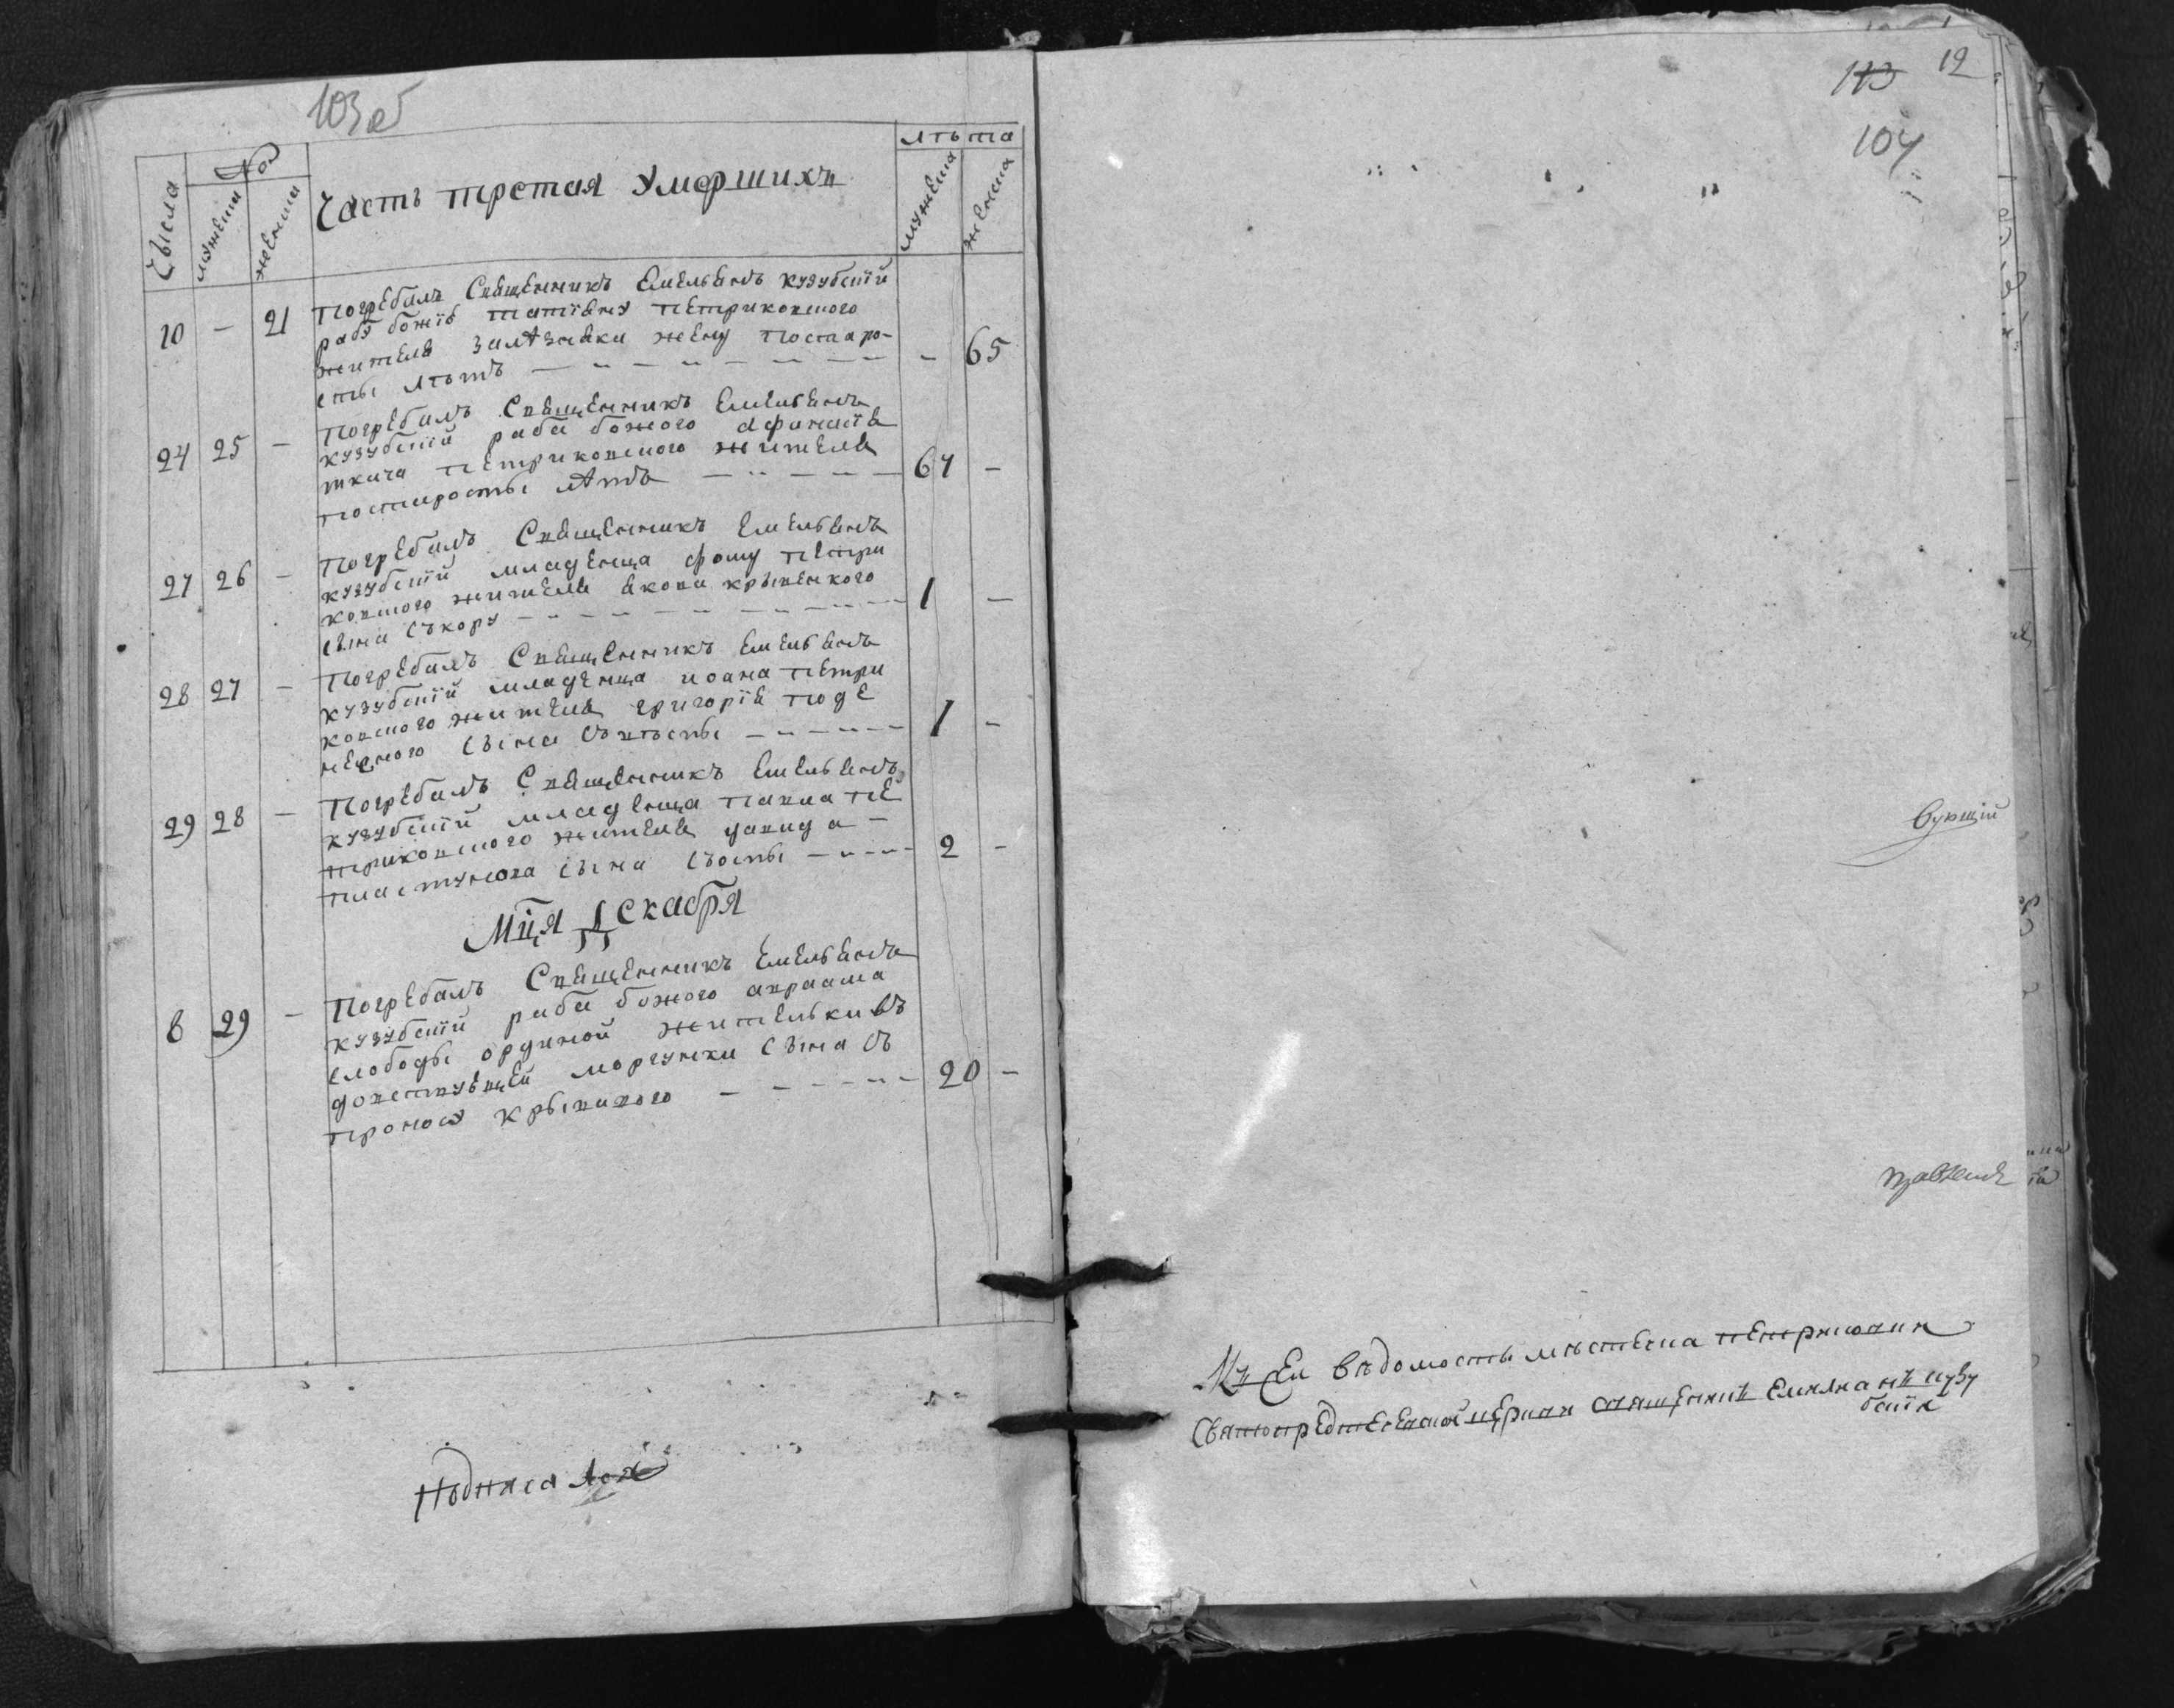 103об
Числа
№
мужеска
женска
Часть третая умершихъ
лѣта
мужеска
женска
10 - 21
Погребалъ Священникъ Емельянъ Кузубскій
рабу божію Татіяну Петриковского
жителя Зилѣзняки жену по старо-
сты лѣтъ
- 65
24 25 -
Погребалъ Священникъ Емельянъ
Кузубскій раба божого Афанасія
ткача Петриковского жителя
по старосты лѣтъ
67 -
27 26 -
Погребалъ Священникъ Емельянъ
Кузубскій младенца Фому Петри
ковского жителя Якова Крывенкого
сына съ кору
1 -
28 27 -
Погребалъ Священникъ Емельянъ
Кузубскій младенца Иоана Петри
ковского жителя Григорія Поде
нерного сына съ вѣспы
1 -
29 28 -
Погребалъ Священникъ Емельянъ
Кузубскій младенца Павла Пе
триковского жителя Давида -
Пластунова сына съ оспы
2 -
Мця Декабря
8 29 -
Погребалъ Священникъ Емельянъ
Кузубскій раба божого Авраама
слободы жительки въ
Моргунки сына съ
проносу крывавого
20 -
113 12
104
вующій
Къ сей вѣдомости мѣстечка Петриковки
Святопредтечевской церкви священникъ Емилианъ Кузу
бскій